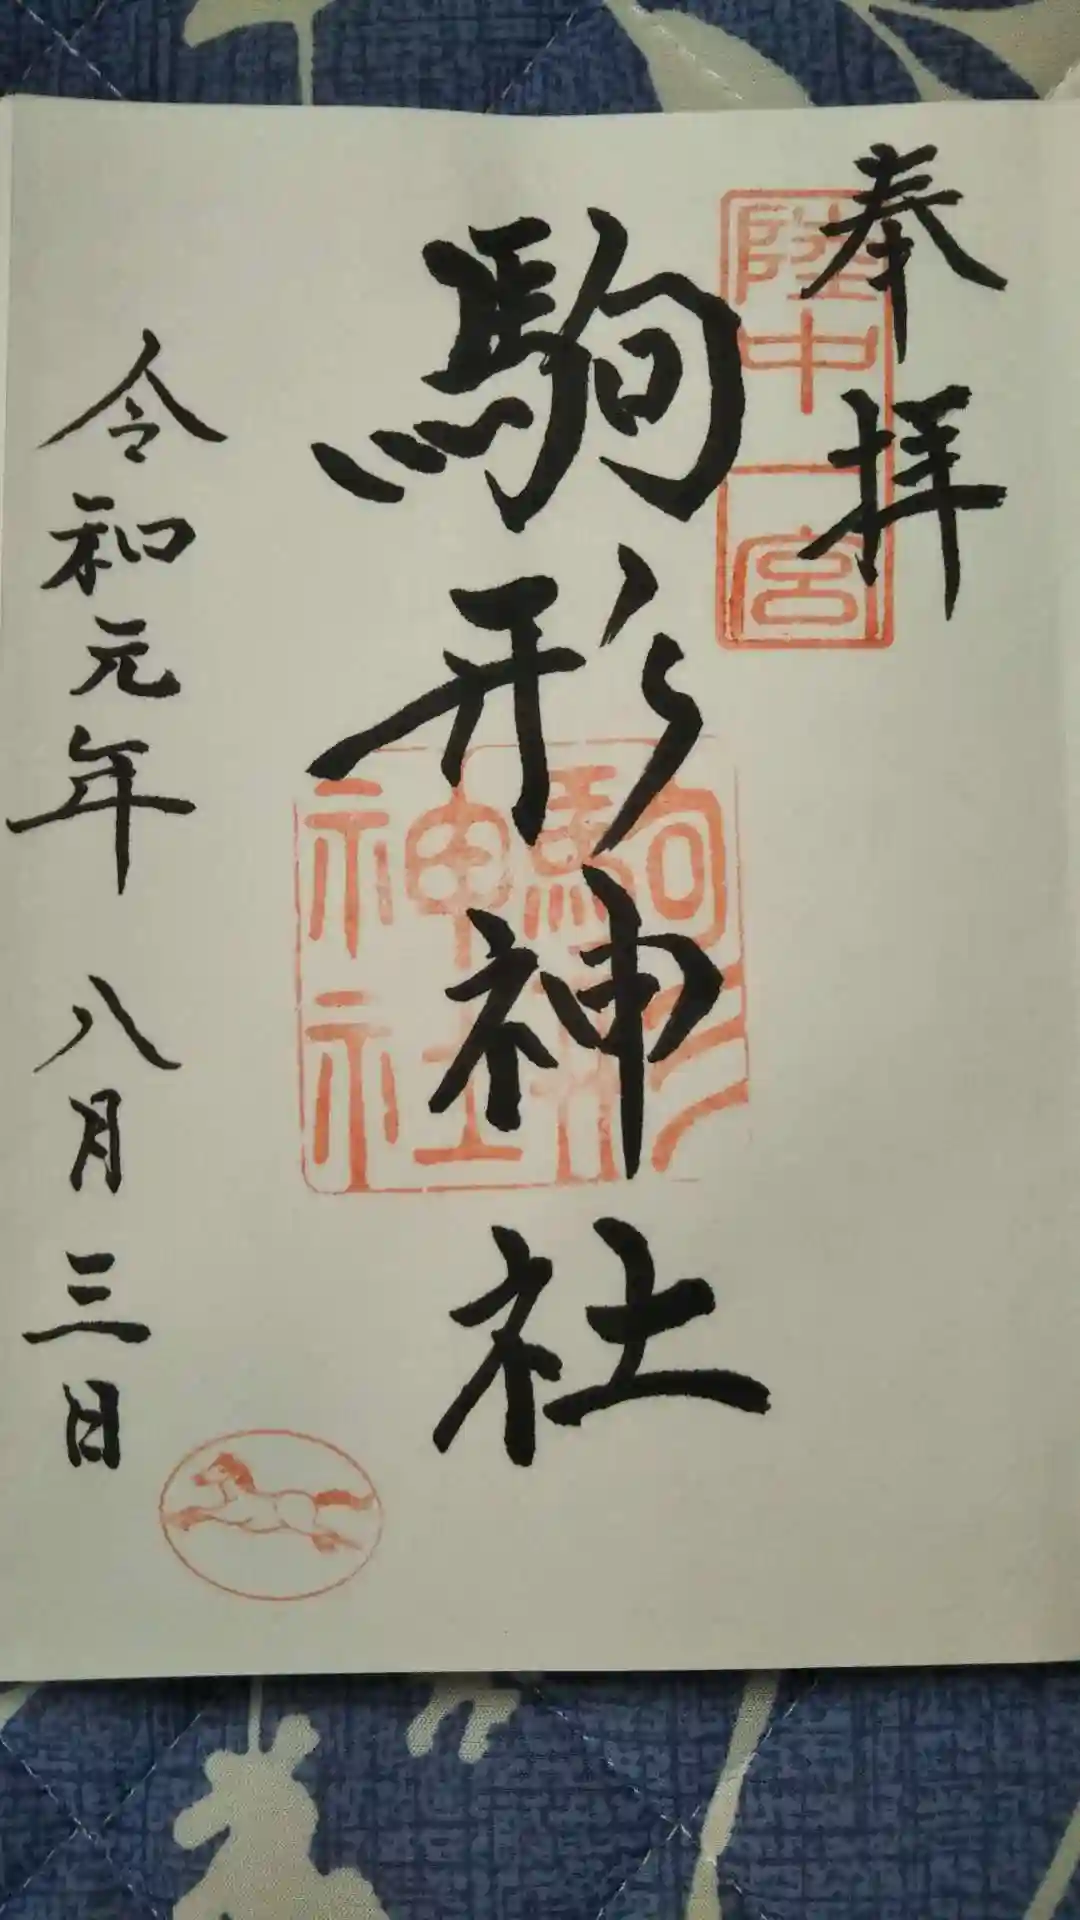 奉拝
陸中一宮
駒形神社
駒形神社
令和元年 八月三日